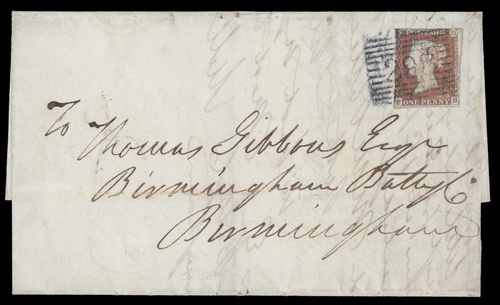 POSTAGE
ONE PENNY
To Thomas Gibbons Esqr
Birmingham Battery Co
Birmingham